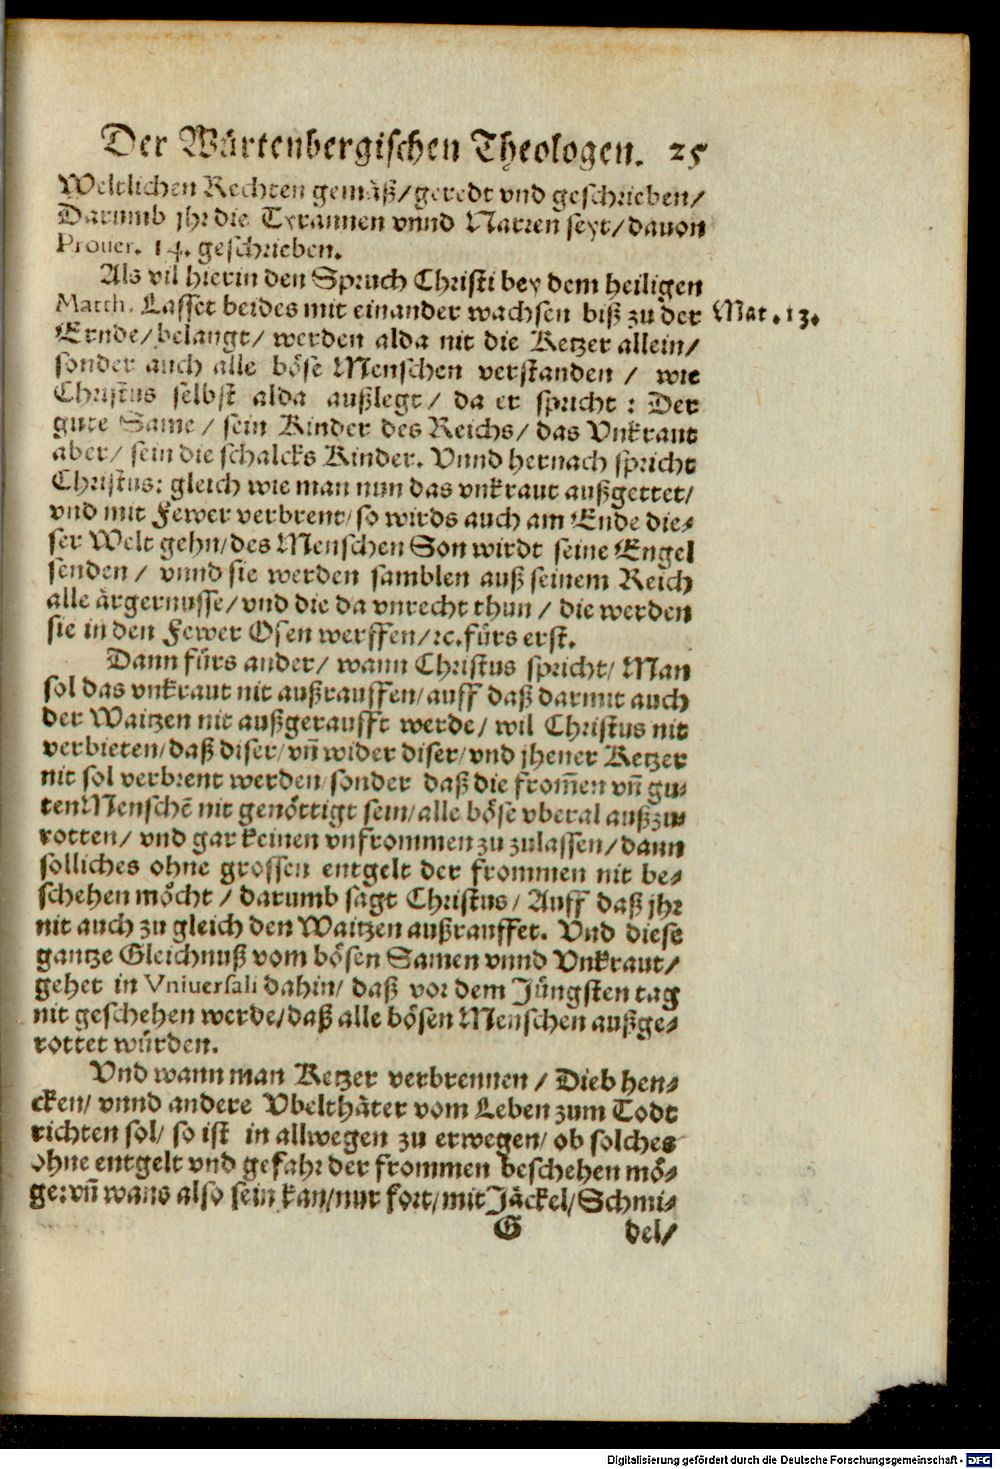 Der Würtenbergischen Theologen. 25
Weltlichen Rechten gemäß/geredt vnd geschrieben/
Darumb jhr die Tyrannen vnnd Narren seyt/dauon
Prouer. 14. geschrieben.
Als vil hierin den Spruch Christi bey dem heiligen
Matth. Lasset beides mit einander wachsen biß zu der Mat. 13.
Ernde/belangt/ werden alda nit die Ketzer allein/
sonder auch alle böse Menschen verstanden / wie
Christus selbst alda außlegt/ da er spricht : Der
gute Same / sein Kinder des Reichs/ das Vnkraut
aber/ sein die schalcks Kinder. Vnnd hernach spricht
Christus: gleich wie man nun das vnkraut außgettet/
vnd mit Fewer verbrent/so wirds auch am Ende die-
ser Welt gehn/des Menschen Son wirdt seine Engel
senden / vnnd sie werden samblen auß seinem Reich
alle ärgernusse/vnd die da vnrecht thun / die werden
sie in den Fewer Ofen werffen/ꝛc. fürs erst.
Dann fürs ander/ wann Christus spricht/ Man
sol das vnkraut nit außrauffen/auff daß darmit auch
der Waitzen nit außgeraufft werde/ wil Christus nit
verbieten/daß diser/vñ wider diser/vnd jhener Ketzer
nit sol verbrent werden/sonder daß die from̄en vñ gu-
ten Menschē nit genöttigt sein/alle böse vberal außzu-
rotten/ vnd gar keinen vnfrommen zu zulassen/dann
solliches ohne grossen entgelt der frommen nit be-
schehen möcht / darumb sagt Christus/ Auff daß jhr
nit auch zu gleich den Waitzen außrauffet. Vnd diese
gantze Gleichnuß vom bösen Samen vnnd Vnkraut/
gehet in Vniuersali dahin/ daß vor dem Jüngsten tag
nit geschehen werde/daß alle bösen Menschen außge-
rottet würden.
Vnd wann man Ketzer verbrennen / Dieb hen-
cken/ vnnd andere Vbelthäter vom Leben zum Todt
richten sol/ so ist in allwegen zu erwegen/ ob solches
ohne entgelt vnd gefahr der frommen beschehen mö-
ge: vñ wans also sein kan/nur fort/mit Jäckel/Schmi-
G del/
Digitalisierung gefördert durch die Deutsche Forschungsgemeinschaft - DFG